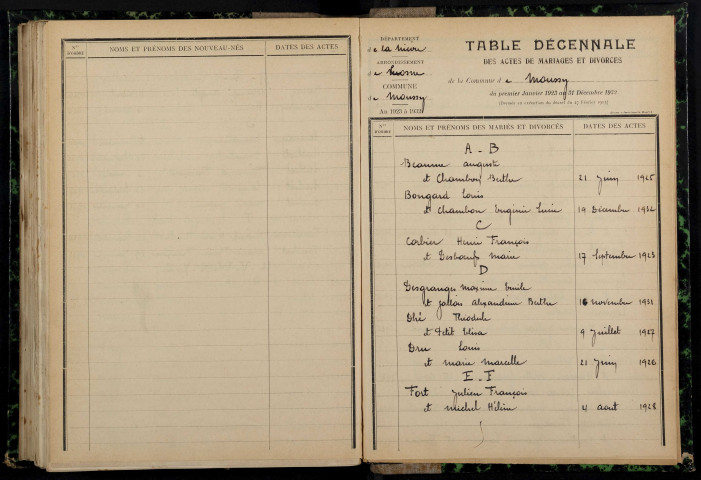 Nos
D'ORDRE
NOMS ET PRÉNOMS DES NOUVEAU-NÉS
DATES DES ACTES
DÉPARTEMENT
de la Nièvre
ARRONDISSEMENT
de
COMMUNE
de Moussy
An 1923 à 1932
TABLE DÉCENNALE
DES ACTES DE MARIAGES ET DIVORCES
de la Commune de Moussy
du premier Janvier 1923 au 31 Décembre 1932
(Dressée en exécution du décret du
Nos
D'ORDRE
NOMS ET PRÉNOMS DES MARIÉS ET DIVORCÉS
DATES DES ACTES
A - B
Beaune auguste
et Chambon Berthe 21 Juin 1925
Bongard Louis
et Chambon Eugénie Lucie 19 Décembre 1932
C
Corbier Henri François
et Desboeufs Marie 17 Septembre 1923
D
Desgranges Maxime Emile
et Jallois Alexandrine Berthe 16 novembre 1931
Dhé Théodule
et Petit Elisa 9 Juillet 1927
Dru Louis
et Marie Marcelle 21 Juin 1926
E - F
Fort Julien François
et Michel Hélène 4 aout 1928